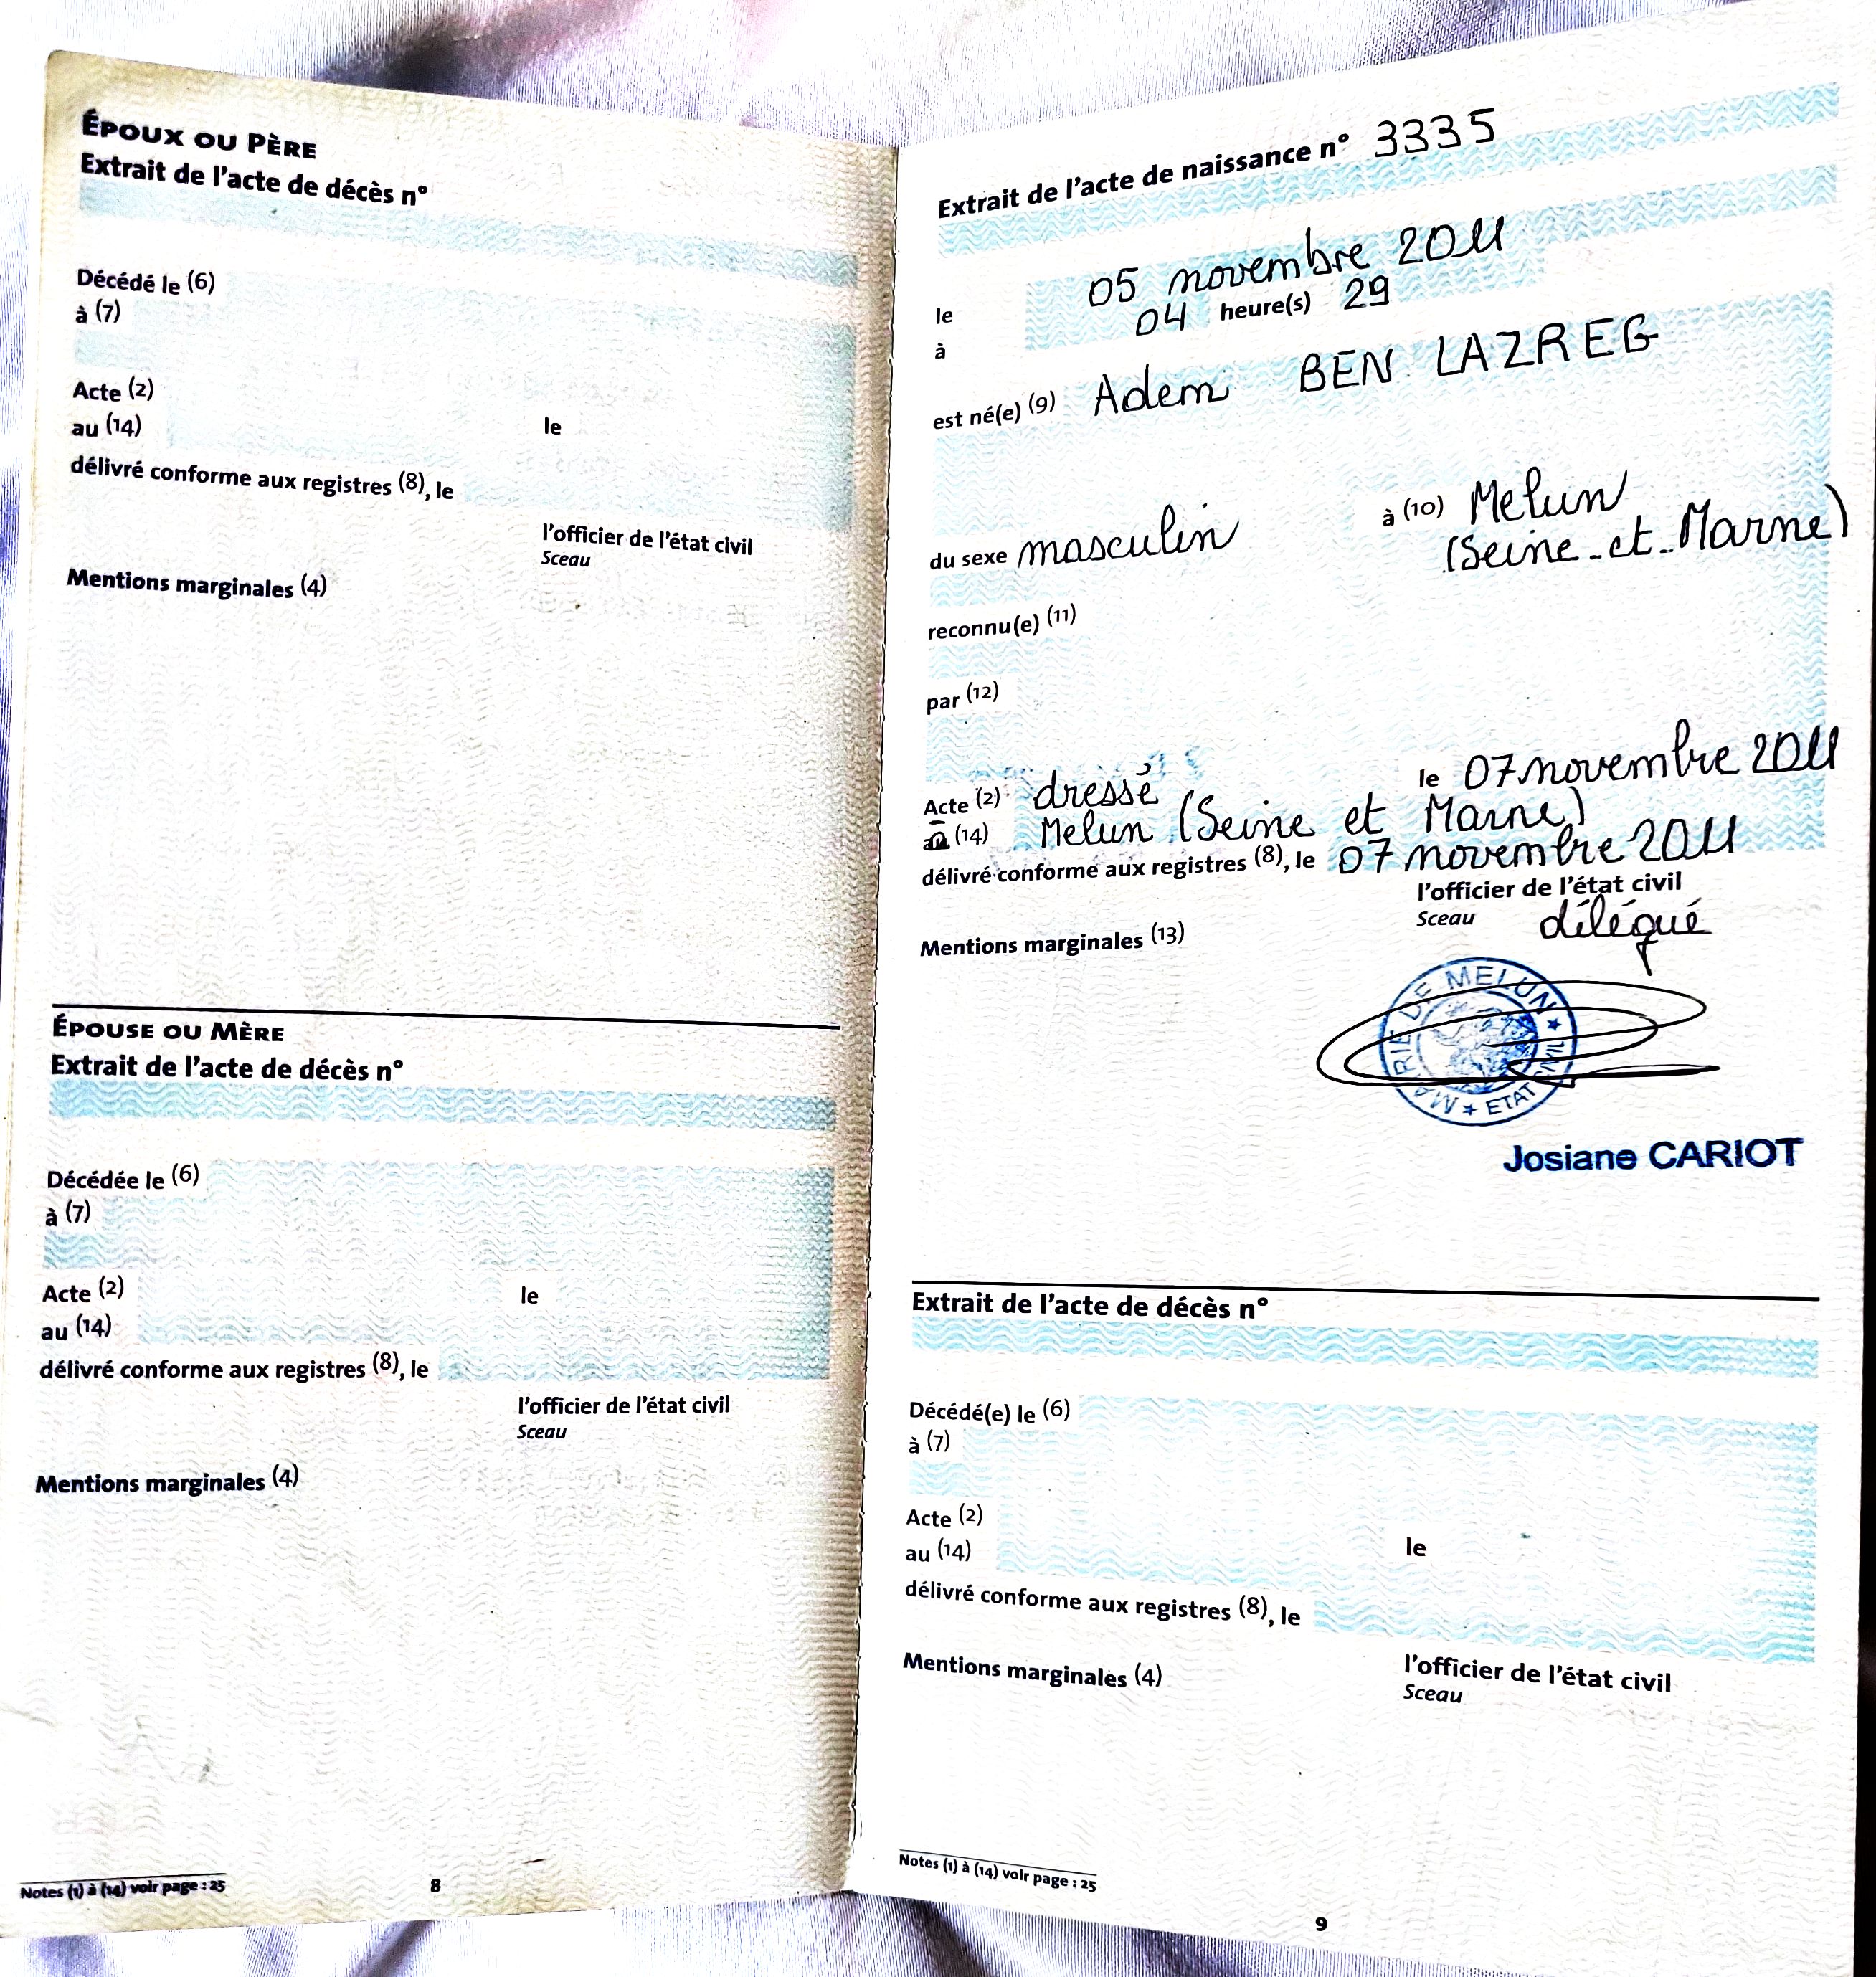 ÉPOUX OU PÈRE
Extrait de l'acte de décès n°
Décédé le (6)
à (7)
Acte (2)
au (14) le
délivré conforme aux registres (8), le
l'officier de l'état civil
Sceau
Mentions marginales (4)
ÉPOUSE OU MÈRE
Extrait de l'acte de décès n°
Décédée le (6)
à (7)
Acte (2) le
au (14)
délivré conforme aux registres (8), le
l'officier de l'état civil
Sceau
Mentions marginales (4)
Notes (1) à (14) voir page : 25
8
Extrait de l'acte de naissance n° 3335
le 05 novembre 2011
à 04 heure(s) 29
est né(e) (9) Adem BEN LAZREG
du sexe masculin à (10) Melun
(Seine-et-Marne)
reconnu(e) (11)
par (12)
Acte (2) dressé le 07 novembre 2011
à (14) Melun (Seine et Marne)
délivré conforme aux registres (8), le 07 novembre 2011
l'officier de l'état civil
Sceau délégué
Mentions marginales (13)
MAIRIE DE MELUN
★ ETAT CIVIL ★
Josiane CARIOT
Extrait de l'acte de décès n°
Décédé(e) le (6)
à (7)
Acte (2)
au (14) le
délivré conforme aux registres (8), le
l'officier de l'état civil
Sceau
Mentions marginales (4)
Notes (1) à (14) voir page : 25
9